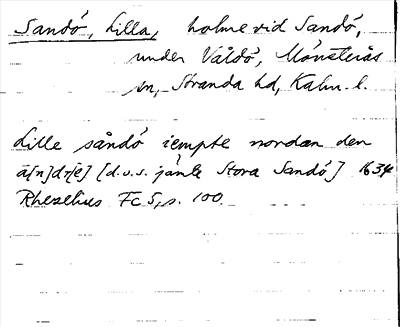 Sandö, Lilla, holme vid Sandö,
under Vållö, Mönsterås
sn, Stranda hd, Kalm. l.
Lille såndö iempte nordan den
a[n]dr[e] [d.v.s. jämte Stora Sandö] 1634
Rhezelius Fc 5, s. 100